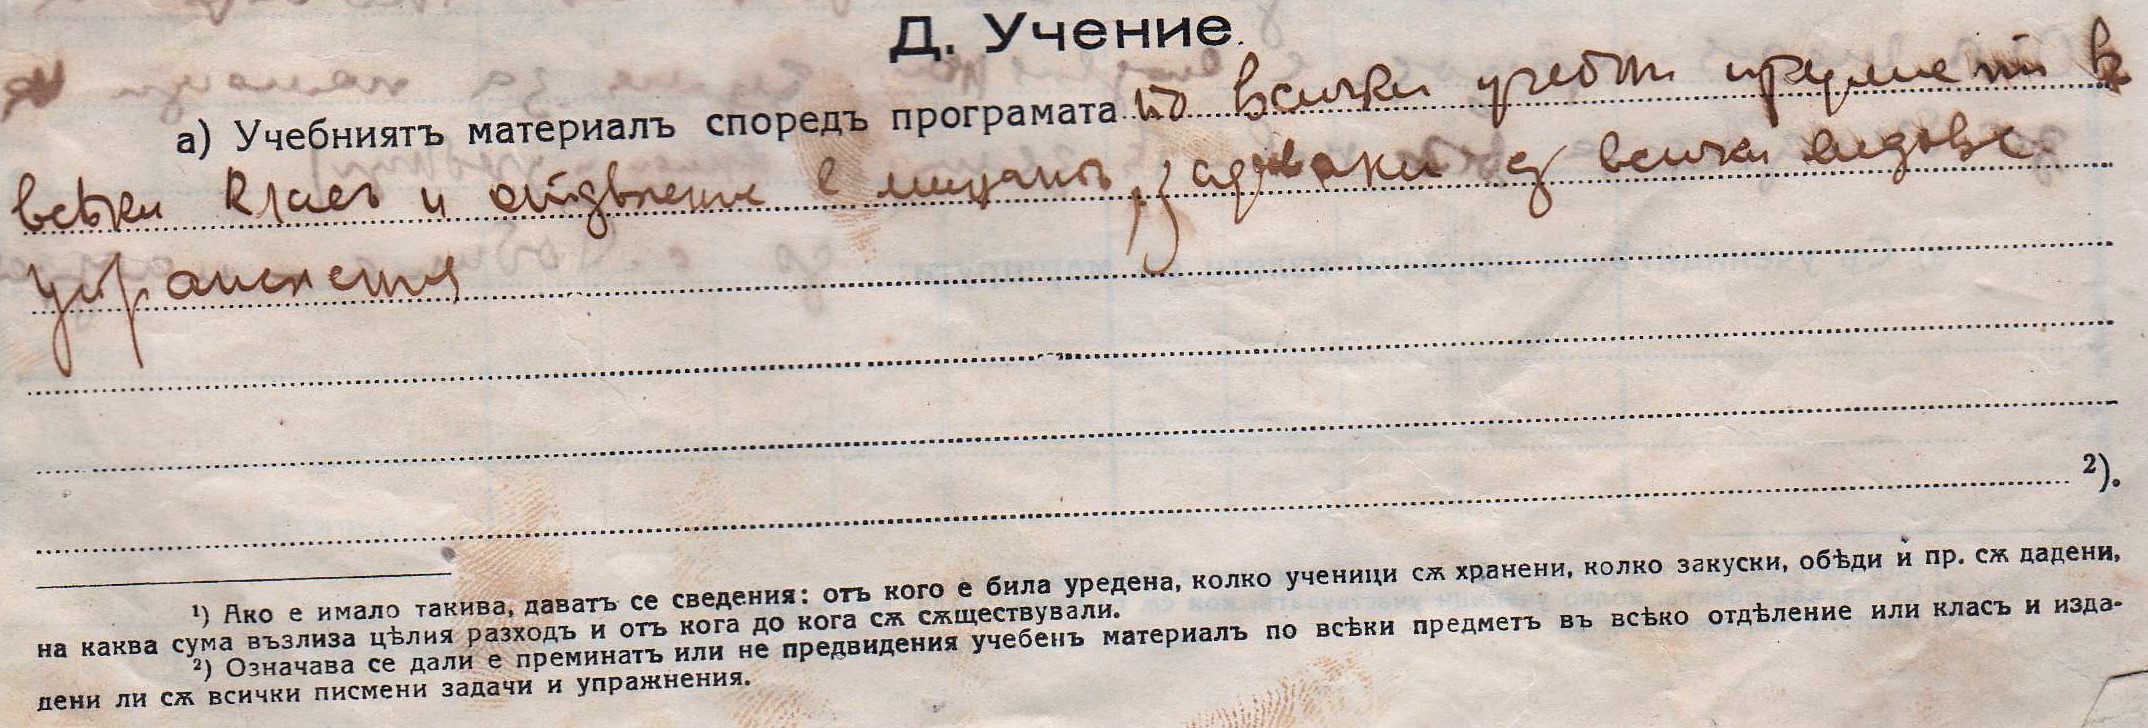 Д. Учение.
а) Учебниятъ материалъ споредъ програмата по всички учебни предмети в
всѣки класъ и отдѣление е миналъ, задавани с всички видове
упражнения
2).
¹) Ако е имало такива, даватъ се сведения: отъ кого е била уредена, колко ученици сѫ хранени, колко закуски, обѣди и пр. сѫ дадени,
на каква сума възлиза цѣлия разходъ и отъ кога до кога сѫ сѫществували.
²) Означава се дали е преминатъ или не предвидения учебенъ материалъ по всѣки предметъ въ всѣко отдѣление или класъ и изда-
дени ли сѫ всички писмени задачи и упражнения.